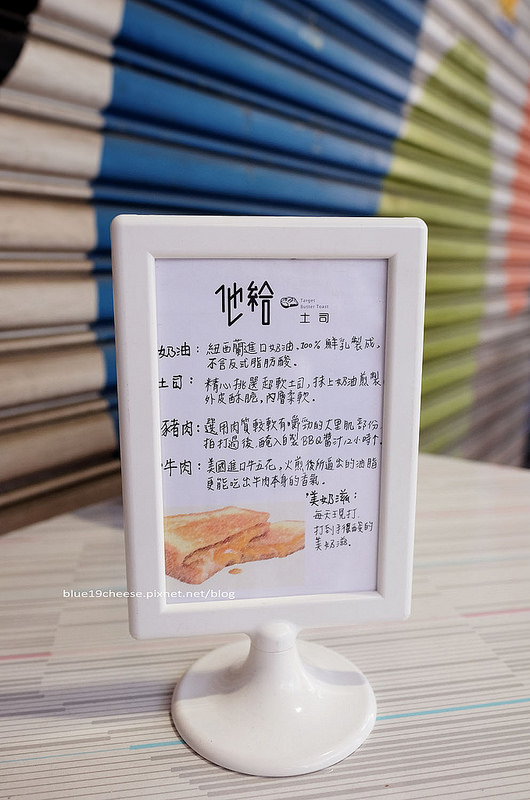 他給
Target
Butter Toast
土司
奶油：紐西蘭進口奶油.100%鮮乳製成,
不含反式脂肪酸。
土司：精心挑選超軟土司,抹上奶油煎製
外皮酥脆,內層柔軟.
豬肉：選用肉質較軟有嚼勁的大里肌部份
拍打過後.醃入自製BBQ醬汁12小時↑.
牛肉：美國進口牛五花,火煎後所逼出的油脂
更能吃出牛肉本身的香氣.
美奶滋：
每天現打.
打到手很酸的
美奶滋.
blue19cheese.pixnet.net/blog